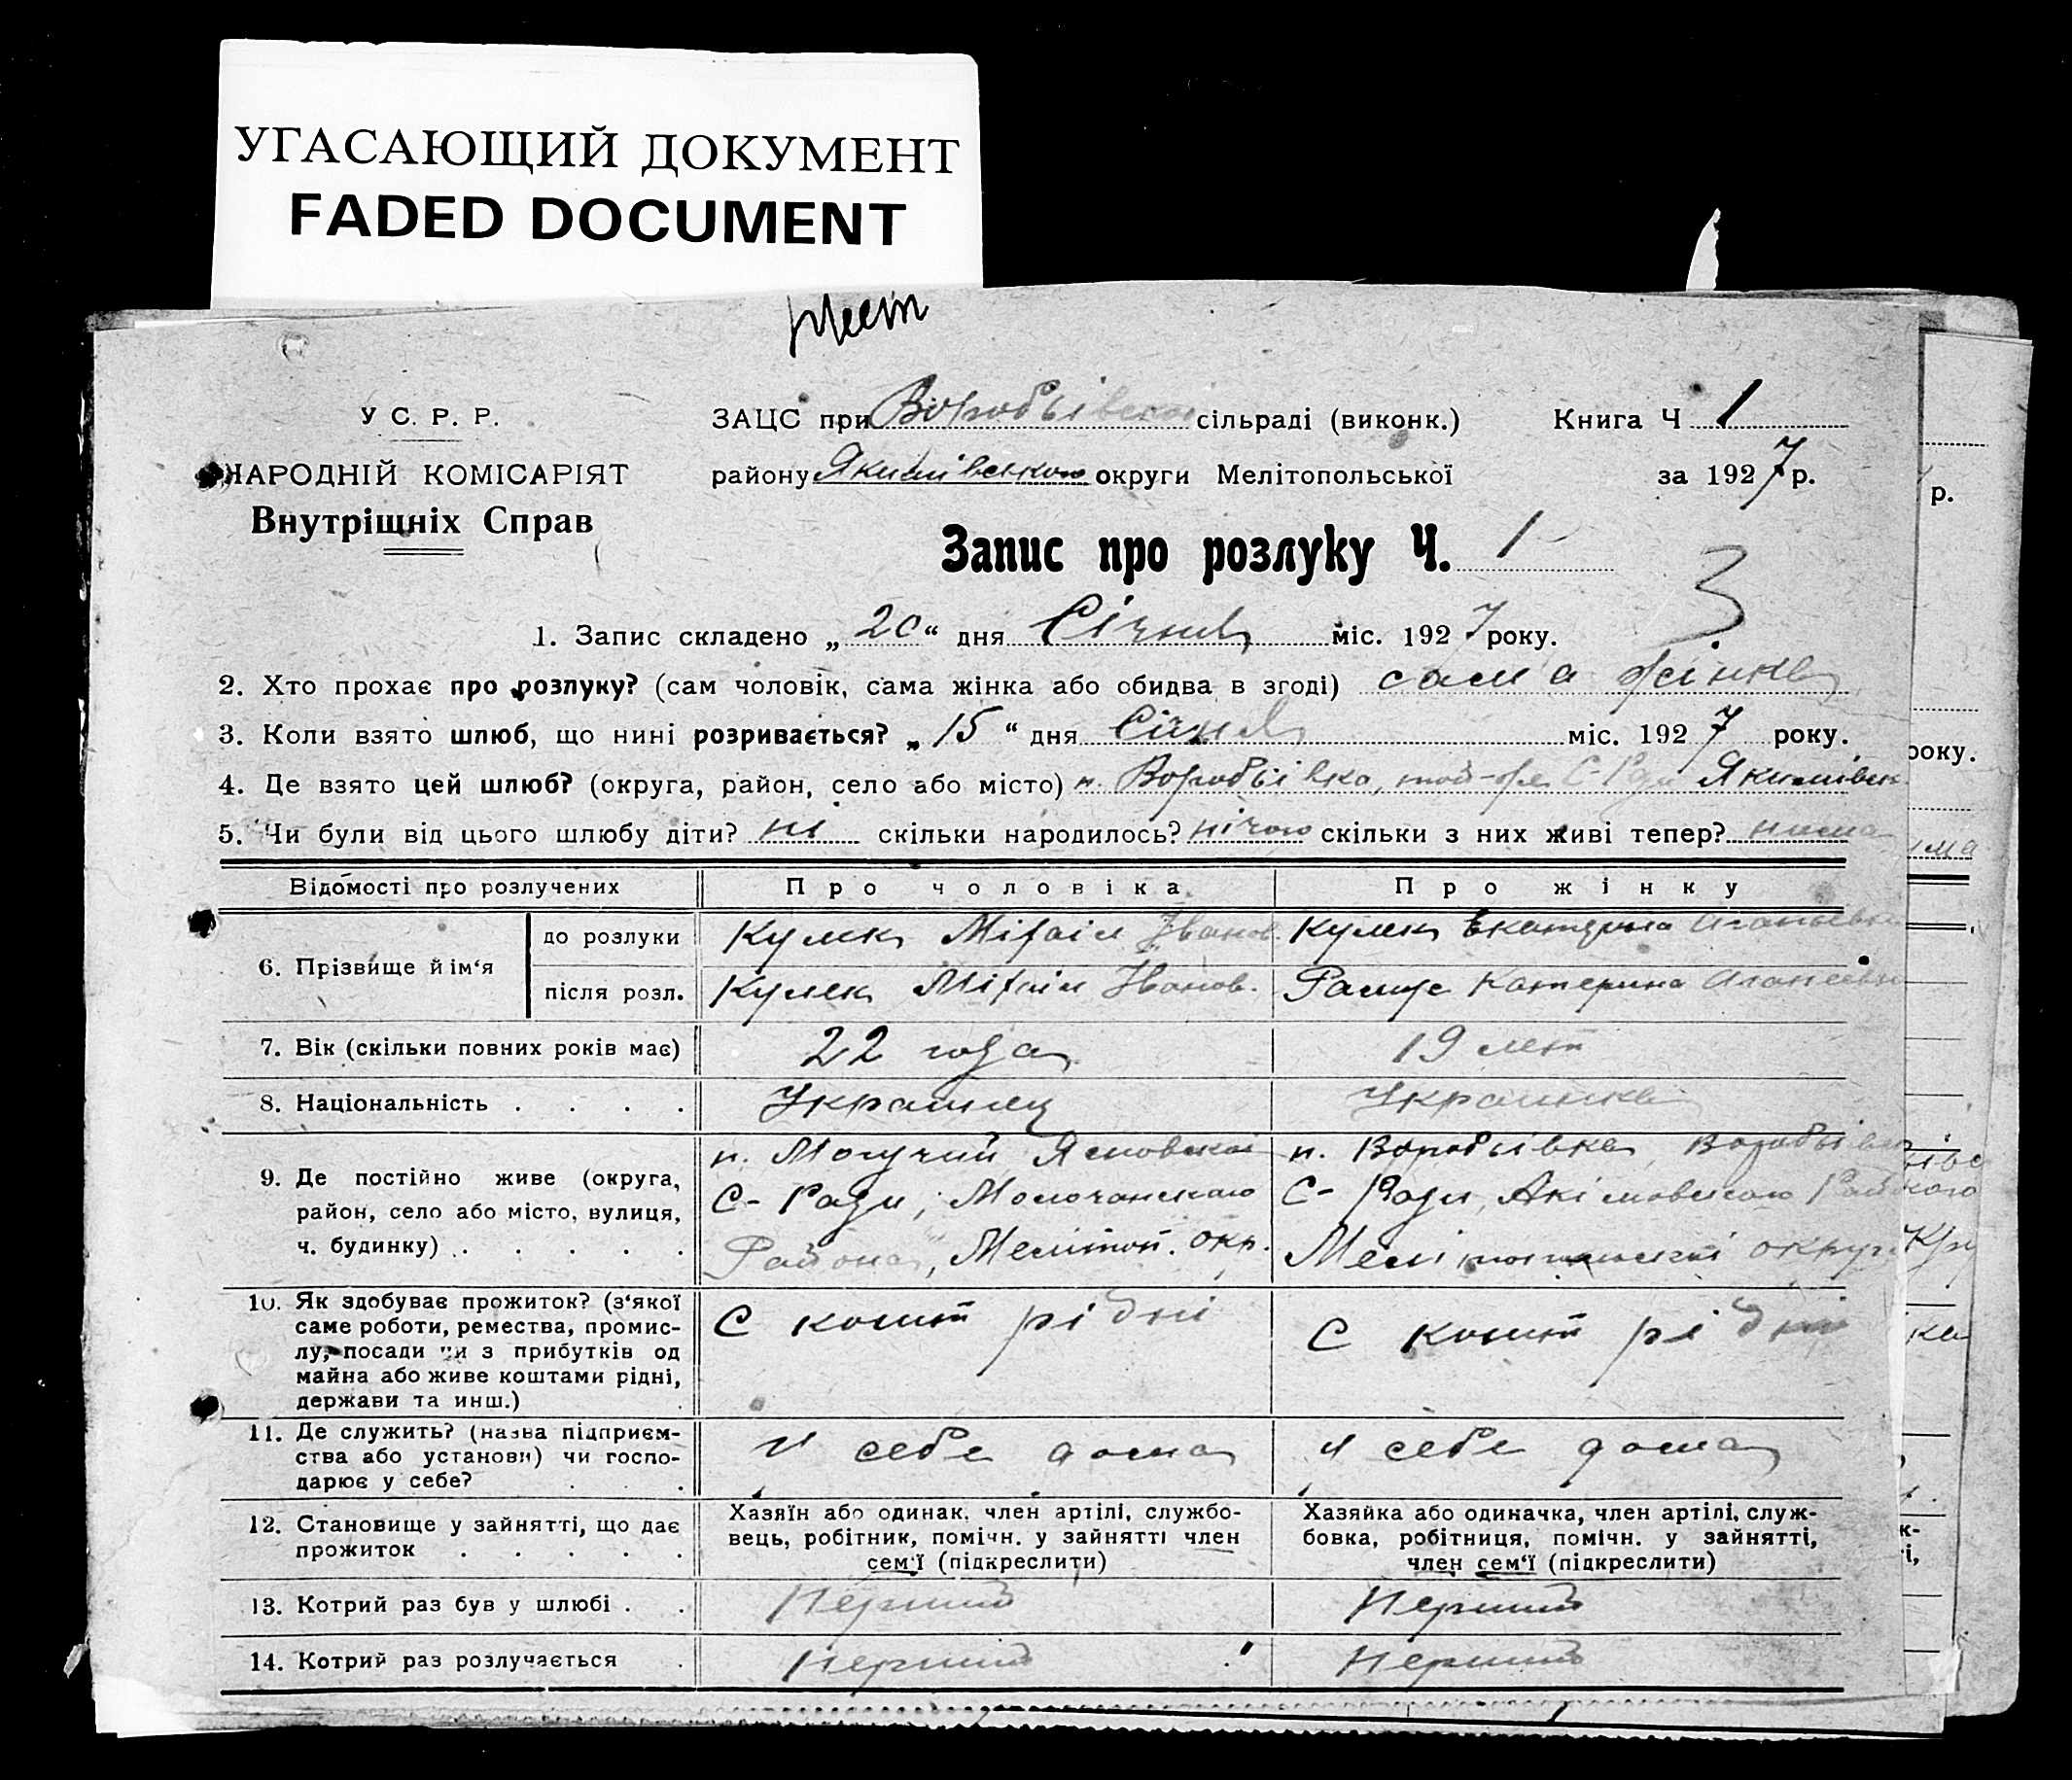 УГАСАЮЩИЙ ДОКУМЕНТ
FADED DOCUMENT
У С. Р. Р.
НАРОДНІЙ КОМІСАРІЯТ
Внутрішніх Справ
ЗАЦС при Воробьівской сільраді (виконк.)
району Якимівського округи Мелітопольської
Книга Ч 1
за 1927 р.
Запис про розлуку Ч. 1
3
1. Запис складено „ 20 “ дня Січня міс. 1927 року.
2. Хто прохає про розлуку? (сам чоловік, сама жінка або обидва в згоді) сама жінка
3. Коли взято шлюб, що нині розривається? „ 15 “ дня Січня міс. 1927 року.
4. Де взято цей шлюб? (округа, район, село або місто) п. Воробьівка, той-же С-Ради Якимівск
5. Чи були від цього шлюбу діти? ні скільки народилось? нічого скільки з них живі тепер? нима
Відомості про розлучених Про чоловіка Про жінку
6. Прізвище й ім‘я
до розлуки Кулек Міхаіл Іванов. Кулек Екатерина
після розл. Кулек Міхаіл Іванов. Катерина
7. Вік (скільки повних років має) 22 года 19 лет
8. Національність . . . . Украинец Украинка
9. Де постійно живе (округа, район, село або місто, вулиця, ч. будинку) . . . . .
п. Могучий Ясновскоі
С- Ради, Молочанского
Района, Мелітоп. окр.
п. Воробьівка, Воробьівск
С- Ради, Акімовского Району
Мелітопольскоі округи
10. Як здобуває прожиток? (з‘якої
саме роботи, ремества, промис-
лу, посади чи з прибутків од
майна або живе коштами рідні,
держави та инш.)
С кошт рідні
С кошт рідні
11. Де служить? (назва підприєм-
ства або установи) чи госпо-
дарює у себе? . . .
у себе дома
у себе дома
12. Становище у зайнятті, що дає
прожиток . . . . .
Хазяїн або одинак, член артілі, службо-
вець, робітник, помічн. у зайнятті член
сем‘ї (підкреслити)
Хазяйка або одиначка, член артілі, служ-
бовка, робітниця, помічн. у зайнятті,
член сем‘ї (підкреслити)
13. Котрий раз був у шлюбі . . Перший Перший
14. Котрий раз розлучається . Перший Перший
р.
року.